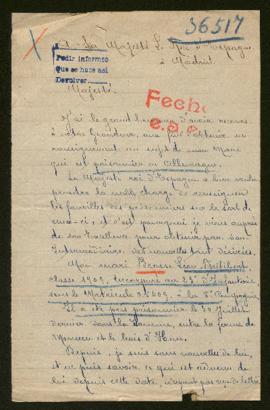 36517
X
A Sa Majesté le Roi d'Espagne,
à Madrid
Pedir informes
que se hace así
Devolver
Majesté,
Fecho
J'ai le grand honneur d'avoir recours
à votre Grandeur, afin d'obtenir un
renseignement au sujet de mon Mari
qui est prisonnier en Allemagne.
Sa Majesté roi d'Espagne a bien voulu
prendre la noble charge de renseigner
les familles des prisonniers sur le sort de
ceux-ci, et c'est pourquoi je viens auprès
de son Excellence pour obtenir par son
Intermédiaire, des nouvelles tant désirées.
Mon mari Léon
classe 1909, incorporé au 23e d'Infanterie
sous le Matricule la Compagnie,
a été fait prisonnier le 30 Juillet
dernier dans la Somme, entre la ferme de
Monacu et le bois d'Hem.
Depuis, je suis sans nouvelles de lui,
et ne puis savoir, ce qui est advenu de
lui depuis cette date, n'ayant pas reçu de lettre